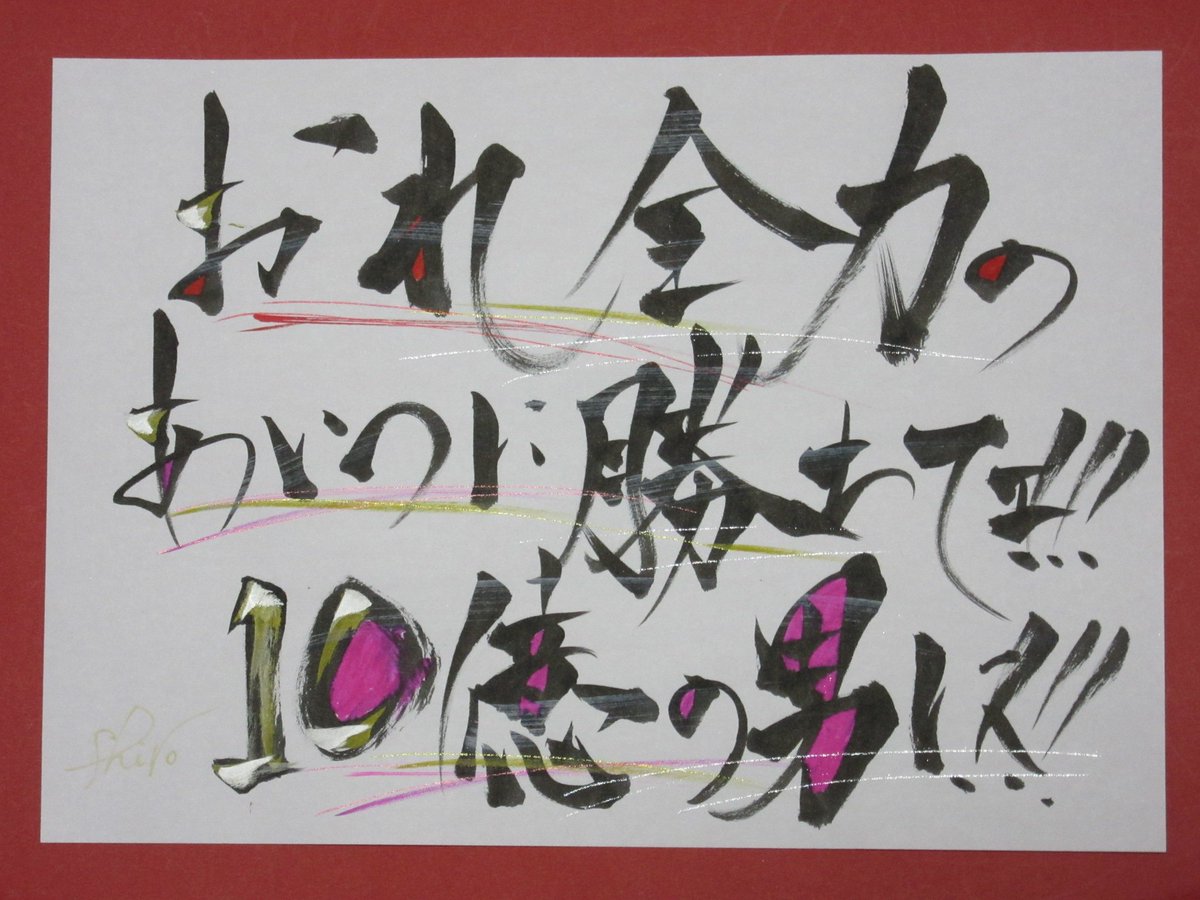 おれ全力の
あいつに勝ちてェ!!!
10億の男